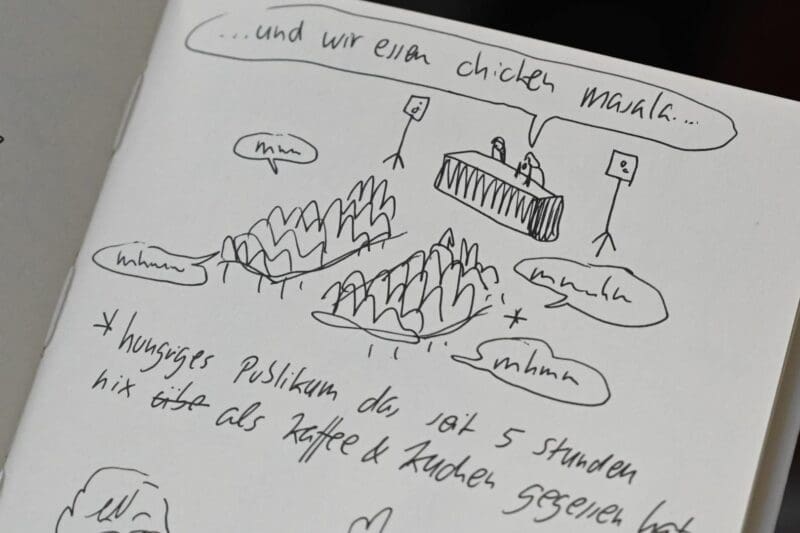 ...und wir essen chicken masala...
mmm
mhmm
mmmhm
*
mhmm
* hungriges Publikum das seit 5 stunden
nix übe als Kaffee & Kuchen gegessen hat